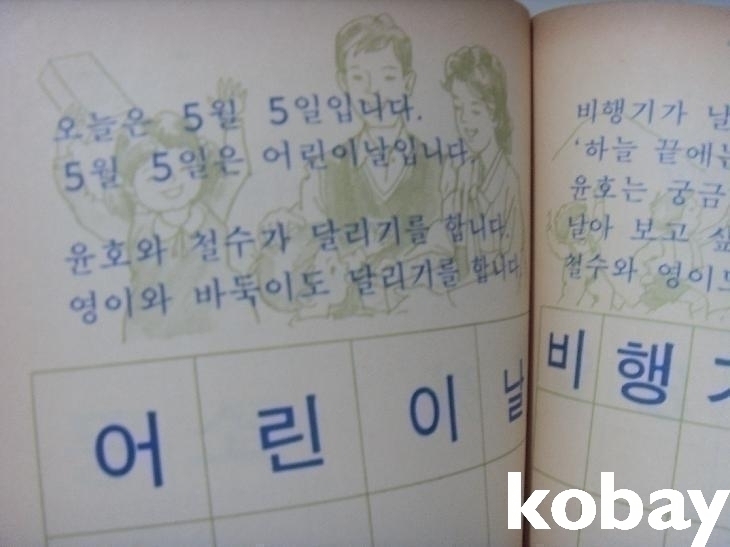 오늘은 5월 5일입니다.
5월 5일은 어린이날입니다.
윤호와 철수가 달리기를 합니다.
영이와 바둑이도 달리기를 합니다.
어 린 이 날
비행기가
'하늘 끝에는
윤호는
날아 보고
철수와 영이도
비 행
kobay